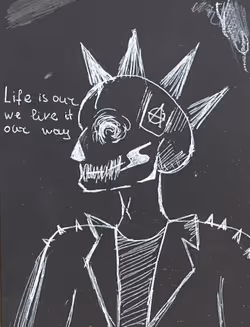 Life is our
we live it
our way